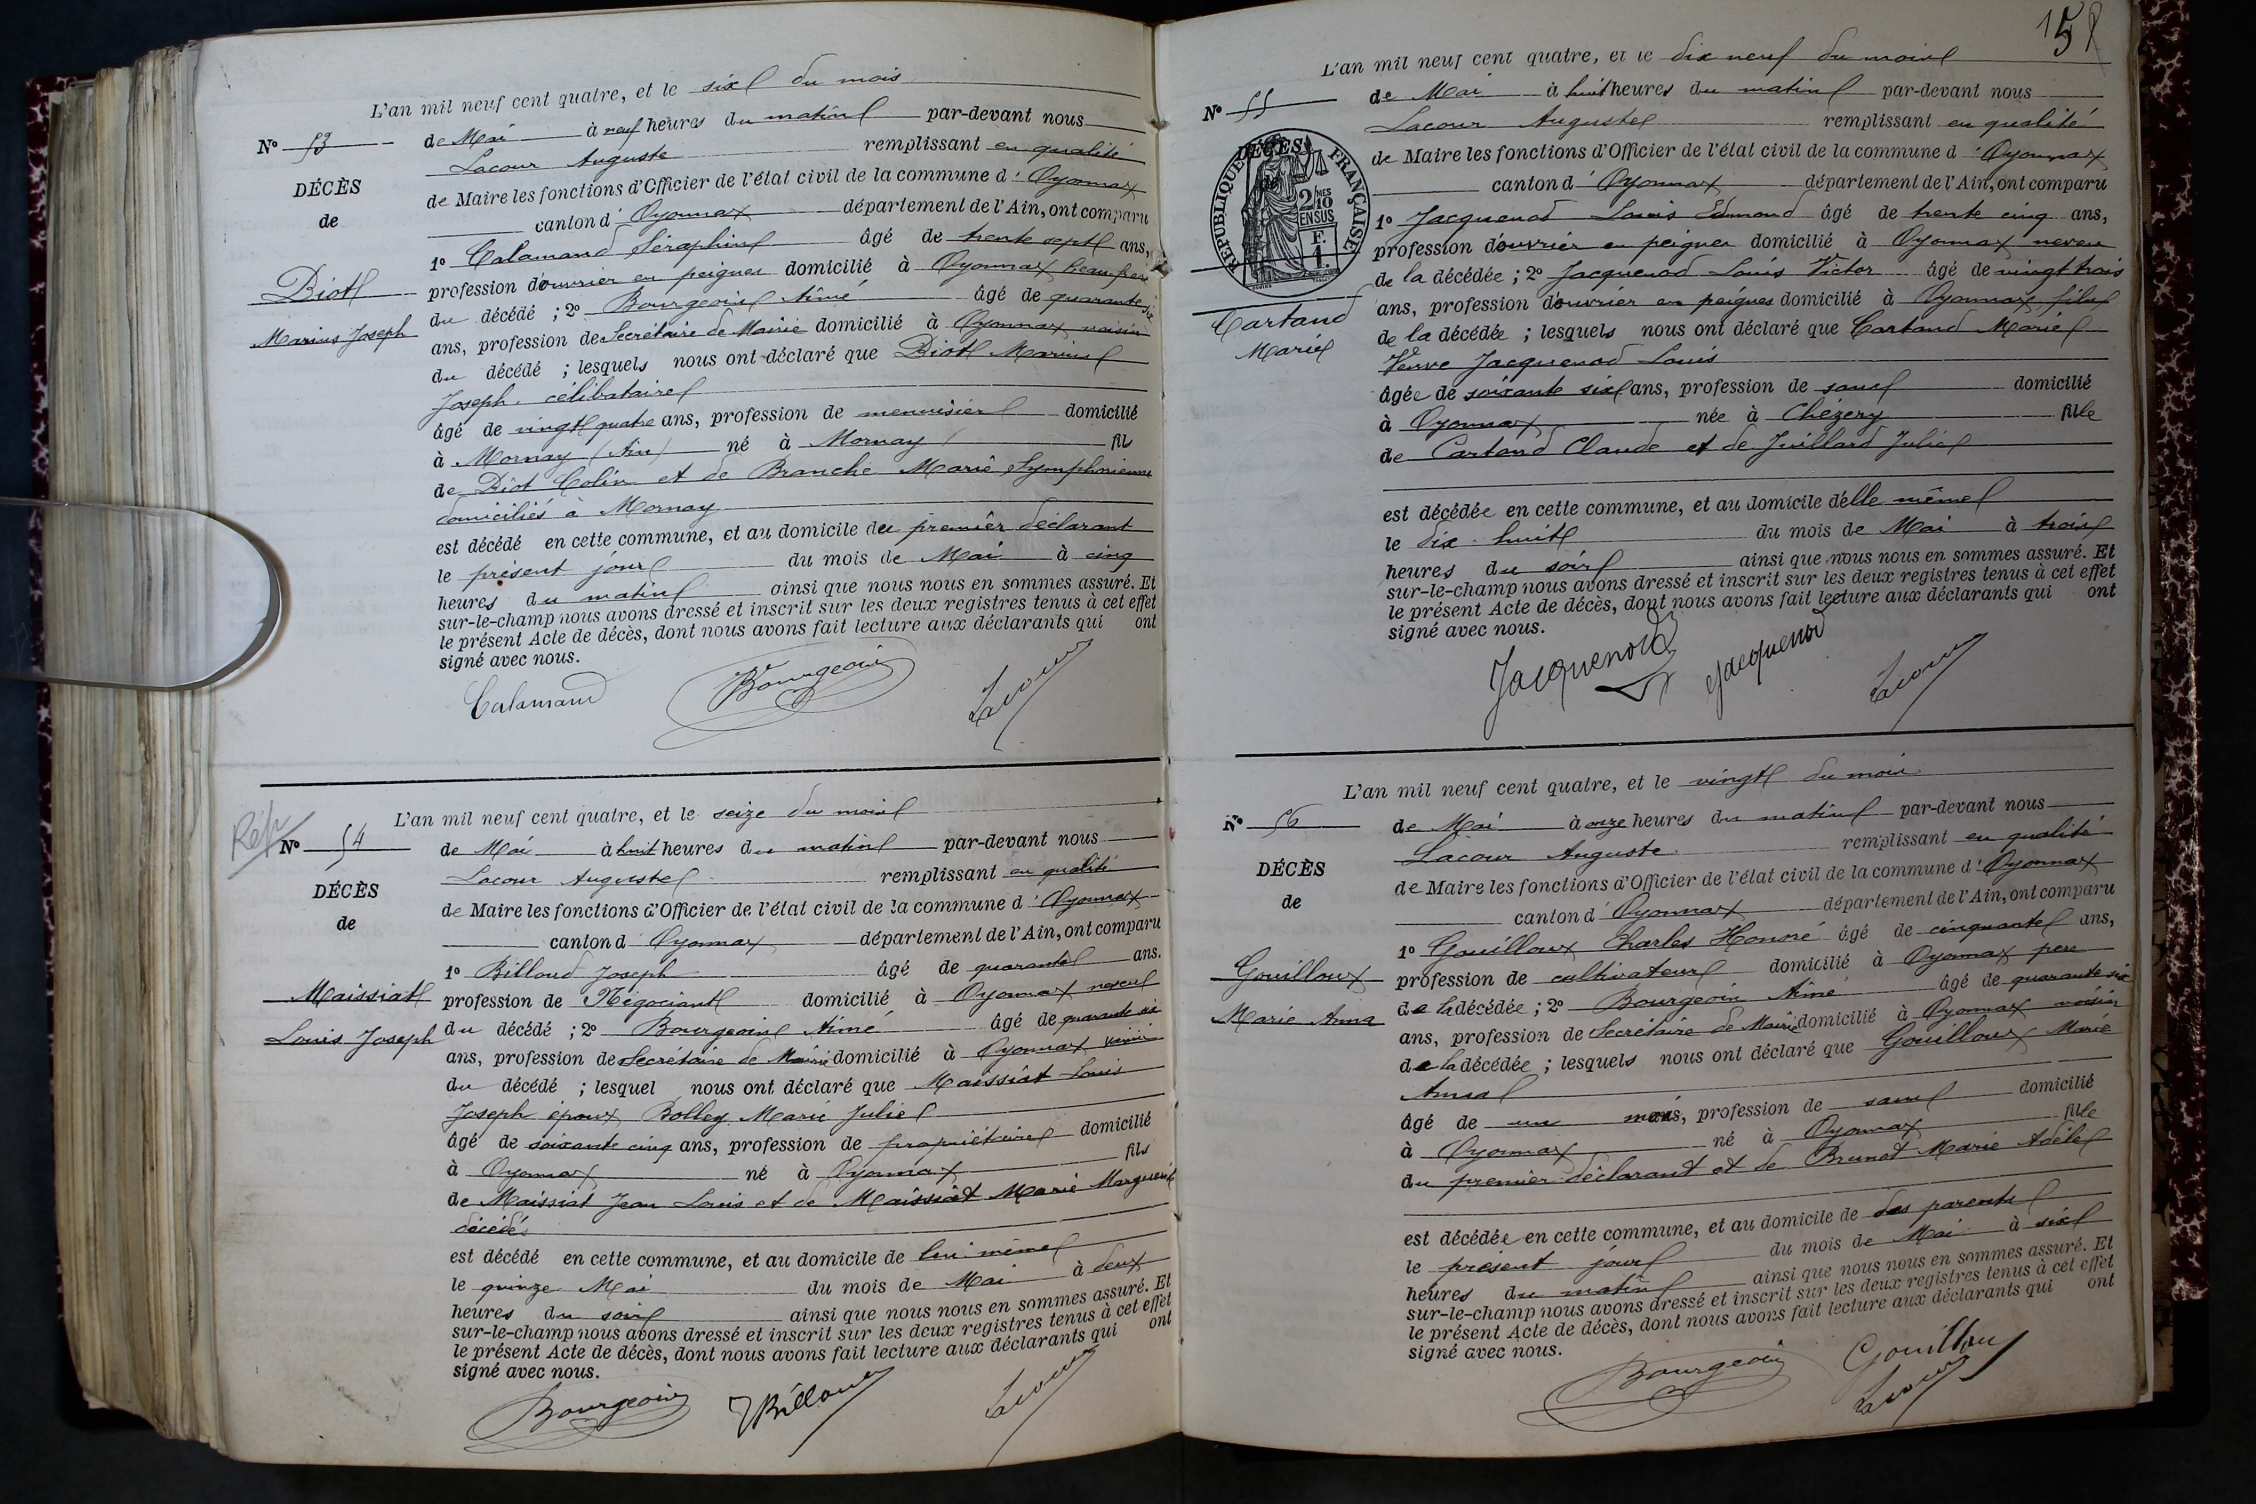 L'an mil neuf cent quatre, et le six du mois
N° 53
de Mai à neuf heures du matin par-devant nous
Lacour Auguste remplissant en qualité
DÉCÈS
de Maire les fonctions d'Officier de l'état civil de la commune d'Oyonnax
de
canton d'Oyonnax département de l'Ain, ont comparu
1° Calamand Séraphin âgé de trente sept ans,
Diot
profession d'ouvrier en peignes domicilié à Oyonnax beau-frère
du décédé ; 2° Bourgeois Aimé âgé de quarante six
Marius Joseph
ans, profession de Secrétaire de Mairie domicilié à Oyonnax voisin
du décédé ; lesquels nous ont déclaré que Diot Marius
Joseph, célibataire
âgé de vingt quatre ans, profession de menuisier domicilié
à Mornay (Ain) né à Mornay fils
de Diot Colin et de Branche Marie Symphorienne
domiciliés à Mornay
est décédé en cette commune, et au domicile du premier déclarant
le présent jour du mois de Mai à cinq
heures du matin ainsi que nous nous en sommes assuré. Et
sur-le-champ nous avons dressé et inscrit sur les deux registres tenus à cet effet
le présent Acte de décès, dont nous avons fait lecture aux déclarants qui ont
signé avec nous.
Calamand Bourgeois Lacour
Rép
L'an mil neuf cent quatre, et le seize du mois
N° 54
de Mai à huit heures du matin par-devant nous
Lacour Auguste remplissant en qualité
DÉCÈS
de Maire les fonctions d'Officier de l'état civil de la commune d'Oyonnax
de
canton d'Oyonnax département de l'Ain, ont comparu
1° Billoud Joseph âgé de quarante ans.
Maissiat
profession de Négociant domicilié à Oyonnax neveu
Louis Joseph
du décédé ; 2° Bourgeois Aimé âgé de quarante six
ans, profession de Secrétaire de Mairie domicilié à Oyonnax voisin
du décédé ; lesquel nous ont déclaré que Maissiat Louis
Joseph époux Bolley Marie Julie
âgé de soixante cinq ans, profession de propriétaire domicilié
à Oyonnax né à Oyonnax fils
de Maissiat Jean Louis et de Maissiat Marie Marguerite
décédés
est décédé en cette commune, et au domicile de lui même
le quinze Mai du mois de Mai à deux
heures du soir ainsi que nous nous en sommes assuré. Et
sur-le-champ nous avons dressé et inscrit sur les deux registres tenus à cet effet
le présent Acte de décès, dont nous avons fait lecture aux déclarants qui ont
signé avec nous.
Bourgeois JBilloud Lacour
L'an mil neuf cent quatre, et le dix neuf du mois
N° 55
de Mai à huit heures du matin par-devant nous
Lacour Auguste remplissant en qualité
DÉCÈS
RÉPUBLIQUE FRANÇAISE
2/10 EN SUS
F. 1.
de Maire les fonctions d'Officier de l'état civil de la commune d'Oyonnax
canton d'Oyonnax département de l'Ain, ont comparu
1° Jacquenod Louis Edmond âgé de trente cinq ans,
profession d'ouvrier en peignes domicilié à Oyonnax neveu
de la décédée ; 2° Jacquenod Louis Victor âgé de vingt trois
ans, profession d'ouvrier en peignes domicilié à Oyonnax fils
Cartand
de la décédée ; lesquels nous ont déclaré que Cartand Marie
Marie
Veuve Jacquenod Louis
âgée de soixante six ans, profession de sans domicilié
à Oyonnax née à Chézery fille
de Cartand Claude et de Juillard Julie
est décédée en cette commune, et au domicile d'elle même
le dix-huit du mois de Mai à trois
heures du soir ainsi que nous nous en sommes assuré. Et
sur-le-champ nous avons dressé et inscrit sur les deux registres tenus à cet effet
le présent Acte de décès, dont nous avons fait lecture aux déclarants qui ont
signé avec nous.
Jacquenod Jacquenod Lacour
L'an mil neuf cent quatre, et le vingt du mois
N° 56
de Mai à onze heures du matin par-devant nous
Lacour Auguste remplissant en qualité
DÉCÈS
de Maire les fonctions d'Officier de l'état civil de la commune d'Oyonnax
de
canton d'Oyonnax département de l'Ain, ont comparu
1° Gouilloux Charles Honoré âgé de cinquante ans,
Gouilloux
profession de cultivateur domicilié à Oyonnax père
de la décédée ; 2° Bourgeois Aimé âgé de quarante six
Marie Anna
ans, profession de Secrétaire de Mairie domicilié à Oyonnax voisin
de la décédée ; lesquels nous ont déclaré que Gouilloux Marie
Anna
âgé de un mois, profession de sans domicilié
à Oyonnax né à Oyonnax fille
du premier déclarant et de Brunet Marie Adèle
est décédée en cette commune, et au domicile de des parents
le présent jour du mois de Mai à six
heures du matin ainsi que nous nous en sommes assuré. Et
sur-le-champ nous avons dressé et inscrit sur les deux registres tenus à cet effet
le présent Acte de décès, dont nous avons fait lecture aux déclarants qui ont
signé avec nous.
Bourgeois Gouilloux
Lacour